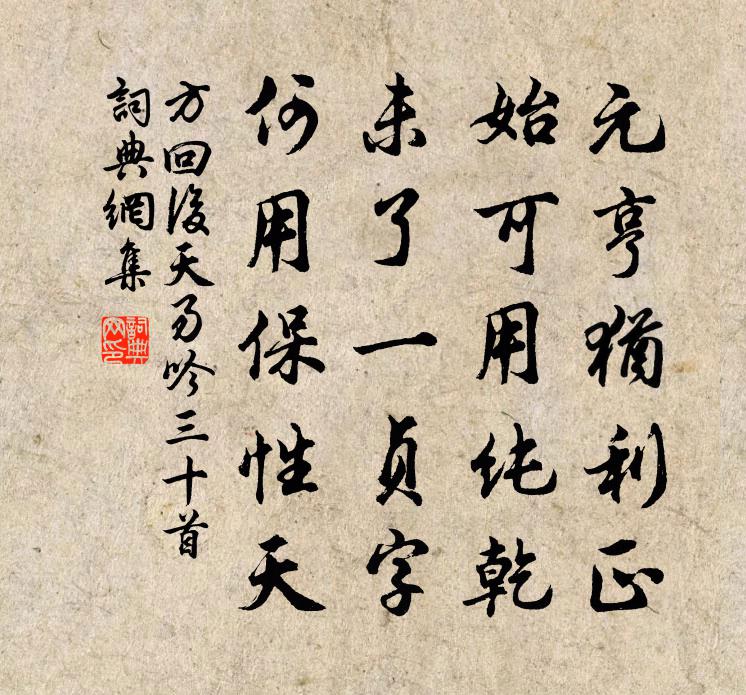 元亨猶利正
始可用纯乾
未了一貞字
何用保性天
方回後天易吟三十首
詞典網集
詞典網印